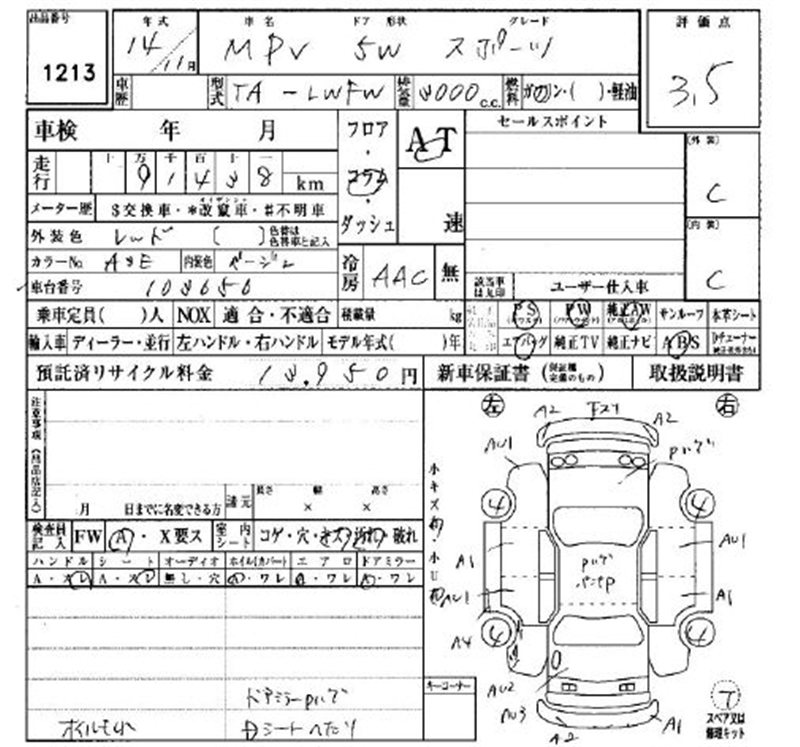 出品番号 年式 車名 ドア 形状 グレード 評価点
1213 14/11月 MPV 5W スポーツ 3.5
車歴 型式 TA-LWFW 排気量 3000 c.c. 燃料 ガソリン・( )・軽油
車検 年 月 フロア・コラム・ダッシュ AT 速 セールスポイント (外装) C
走行 十 万 千 百 十 一
91438 km
メーター歴 $交換車・*改竄車・#不明車
カイザンシャ
外装色 レッド ( ) 色替は色替車と記入 (内装) C
カラーNo. A3E 内装色 ベージュ 冷房 AAC 無 該当車は丸印 ユーザー仕入車
車台番号 103650
乗車定員( )人 NOX 適合・不適合 積載量 kg PS PW 純正AW サンルーフ 本革シート
輸入車 ディーラー・並行 左ハンドル・右ハンドル モデル年式( )年 エアバッグ 純正TV 純正ナビ ABS
預託済リサイクル料金 13,950円 新車保証書 (保証継続完備のもの) 取扱説明書
注意事項 (出品店記入)
左 右
A2 下スリ A2
AU1 Pハゲ
小キズ有
4 4
月 日までに名変できる方 諸元 長さ × 幅 × 高さ
検査員記入 FW A・X要ス 室内シート コゲ・穴・キズ・汚れ・破れ
小U有
A1 AU1
ハンドル シート オーディオ ホイル(カバー) エアロ ドアミラー
A・スレ A・スレ 無し・穴 A・ワレ A・ワレ A・ワレ
Pハゲ
AU1 A1
A4 4 4
キーコーナー
ドアミラーPハゲ
AU2
AU3 A2 A1
T
スペア又は修理キット
Dシートヘたり